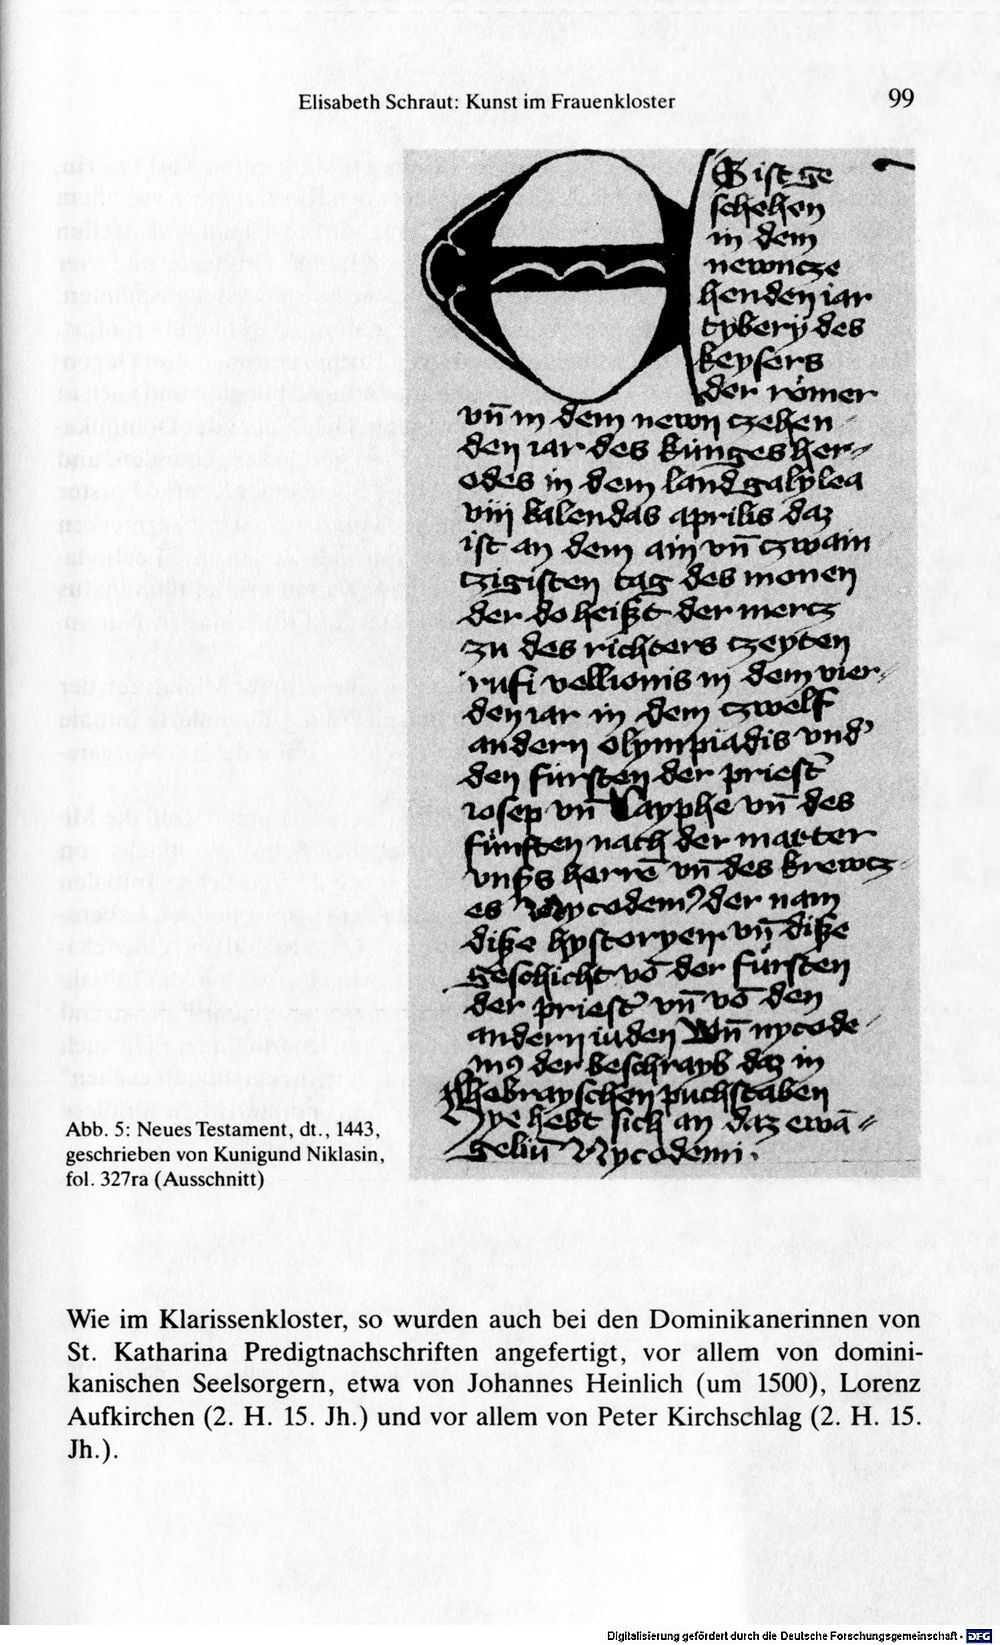 Elisabeth Schraut: Kunst im Frauenkloster 99
ES ist ge
schehen
in dem
newncze
henden iar
tyberÿ des
keysers
der römer
vn̄ in dem newn czehen
den iar des künges her
odes in dem land galÿlea
viij kalendas aprilis daz
ist an dem ain vn̄ czwain
czigisten tag des monen
der do heißt der mercz
zu des richters czeyten
rufi vellionis in dem vier
den iar in dem czwelf
andern olympiadis vnd
den fürsten der priest̄
iosep vn̄ Cayphe vn̄ des
fünften nach der marter
vnßs herrē vn̄ des krewcz
es Nycodemꝰ der nam
diße hystoryen vn̄ diße
geschicht vō der fürsten
der priest̄ vn̄ vō den
andern iuden Vn̄ nycode
mꝰ der beschrayb daz in
hebrayschen puchstaben
Hye hebt sich an daz ewā
geliū Nycodemi.
Abb. 5: Neues Testament, dt., 1443,
geschrieben von Kunigund Niklasin,
fol. 327ra (Ausschnitt)
Wie im Klarissenkloster, so wurden auch bei den Dominikanerinnen von
St. Katharina Predigtnachschriften angefertigt, vor allem von domini-
kanischen Seelsorgern, etwa von Johannes Heinlich (um 1500), Lorenz
Aufkirchen (2. H. 15. Jh.) und vor allem von Peter Kirchschlag (2. H. 15.
Jh.).
Digitalisierung gefördert durch die Deutsche Forschungsgemeinschaft - DFG